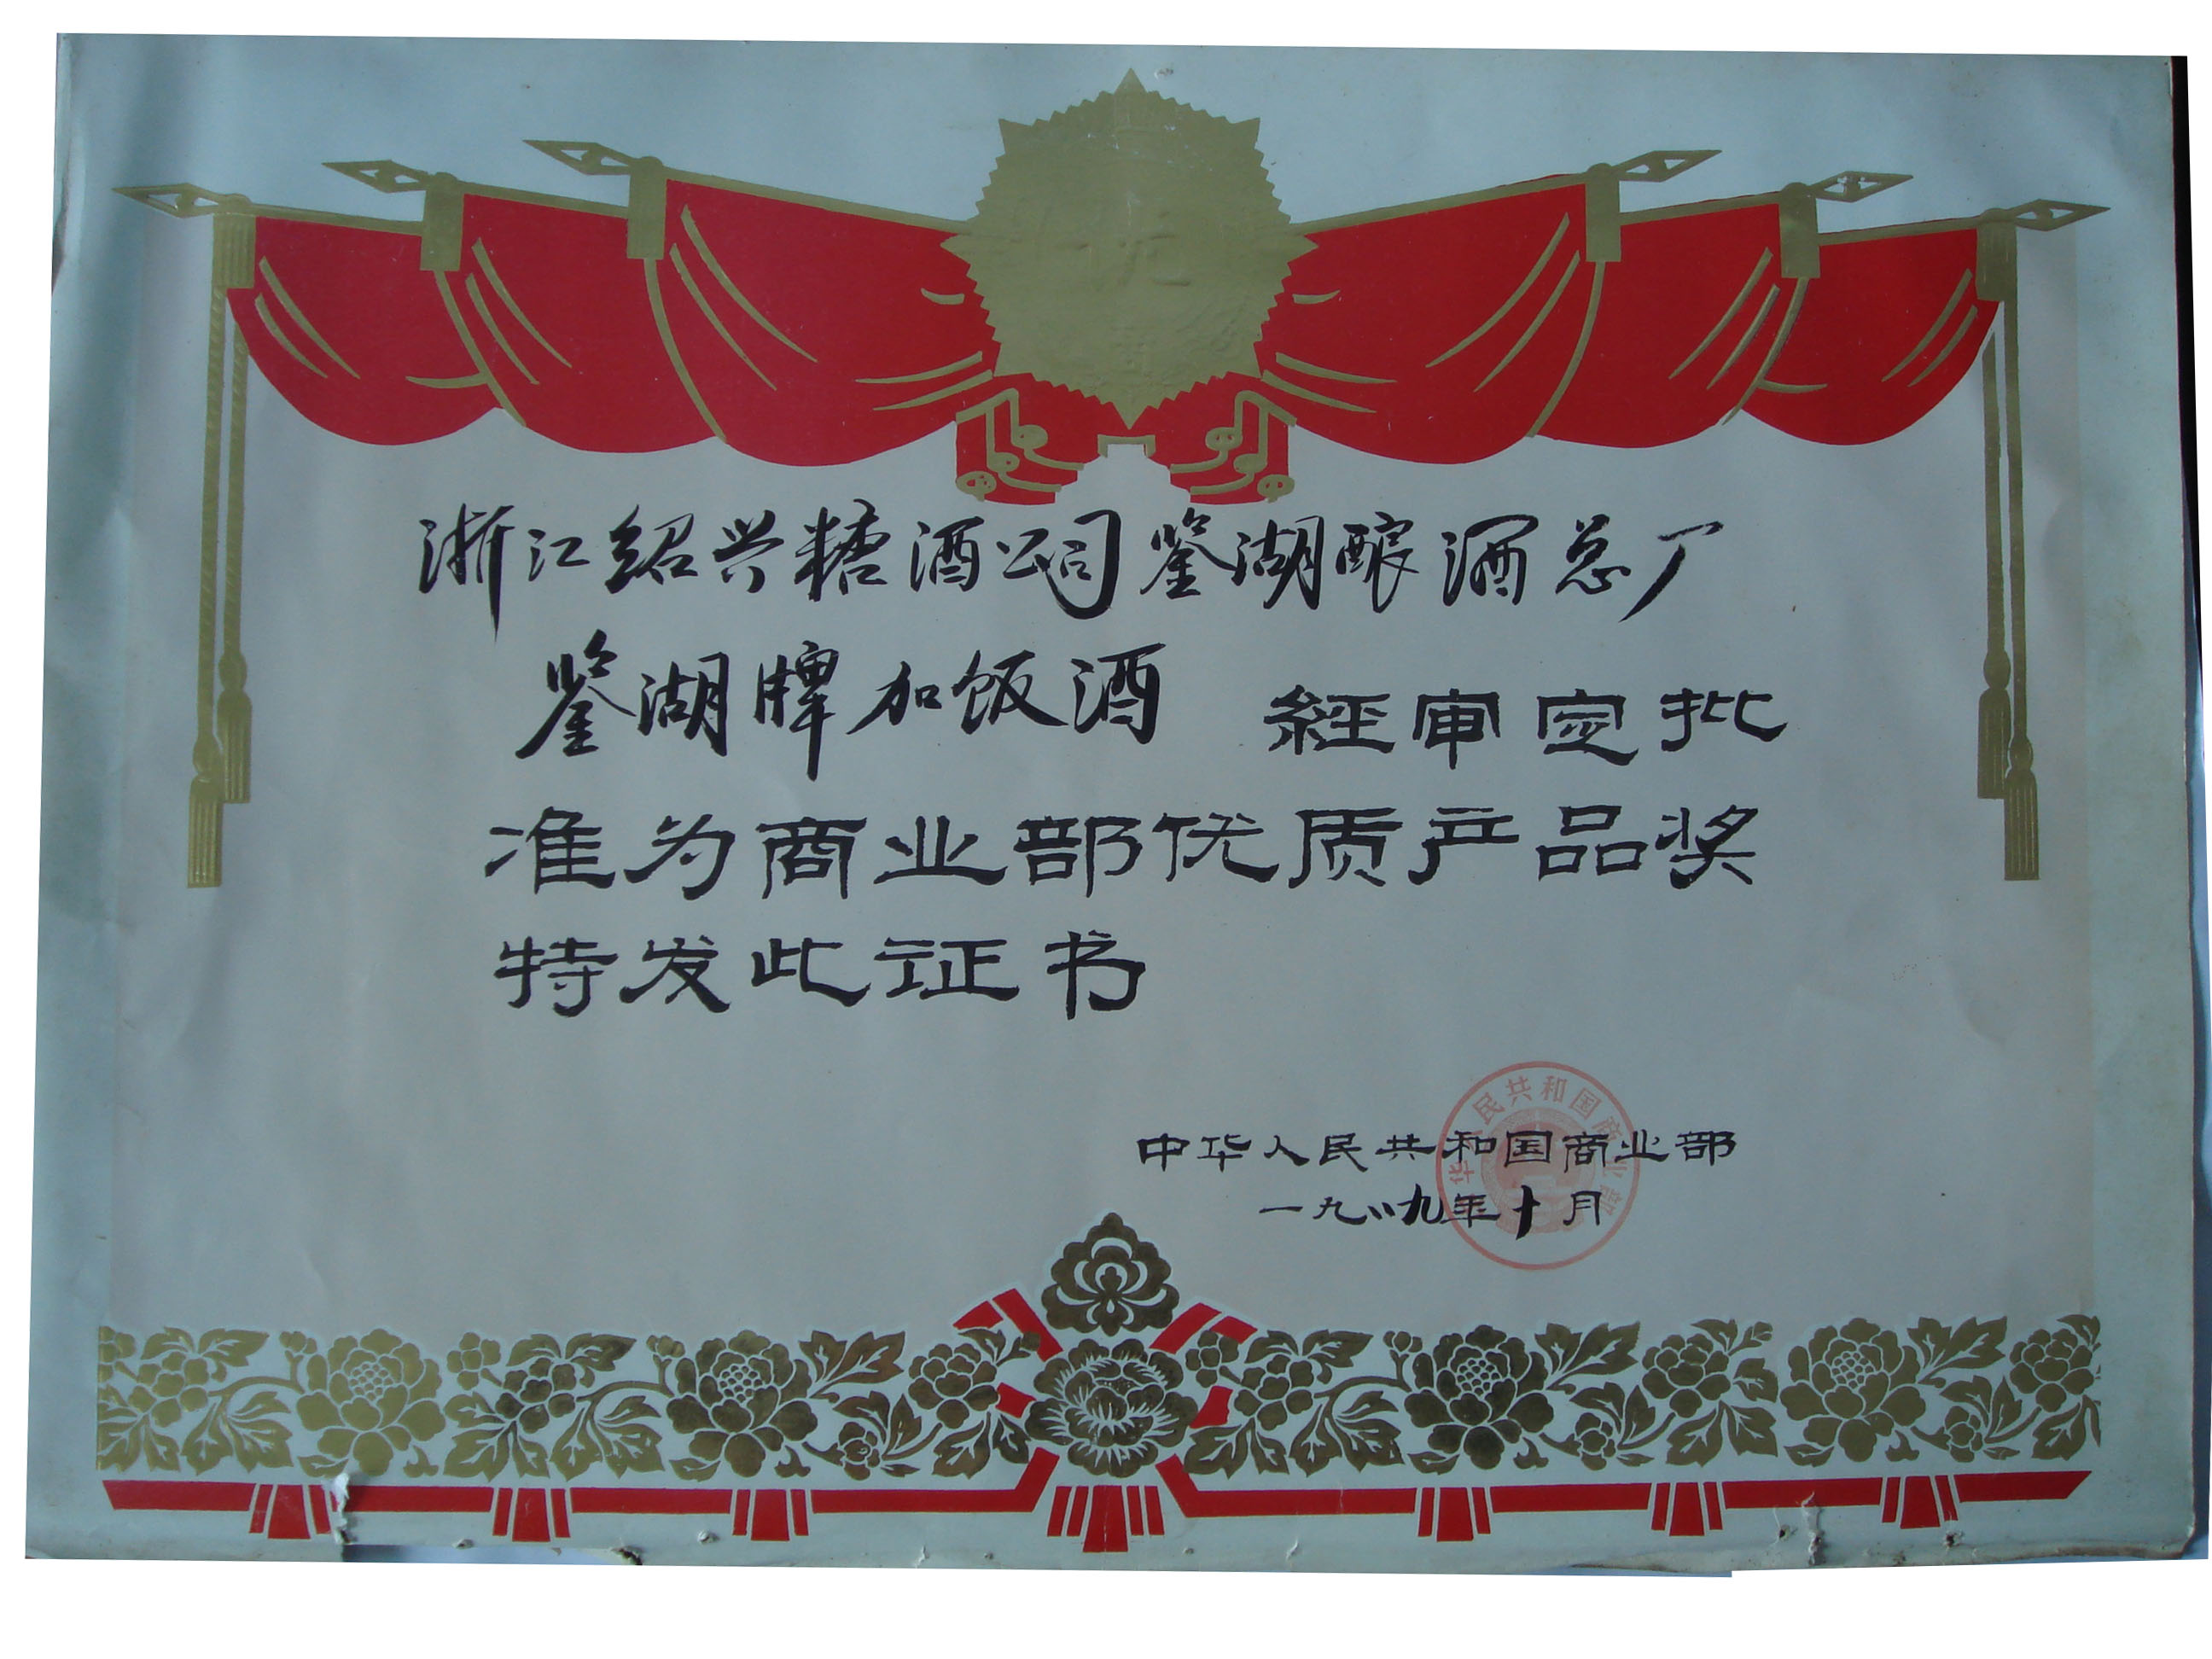 浙江绍兴糖酒公司鉴湖酿酒总厂
鉴湖牌加饭酒 經审定批
准为商业部优质产品奖
特发此证书
中华人民共和国商业部
一九八九年十月
华人民共和国商业部